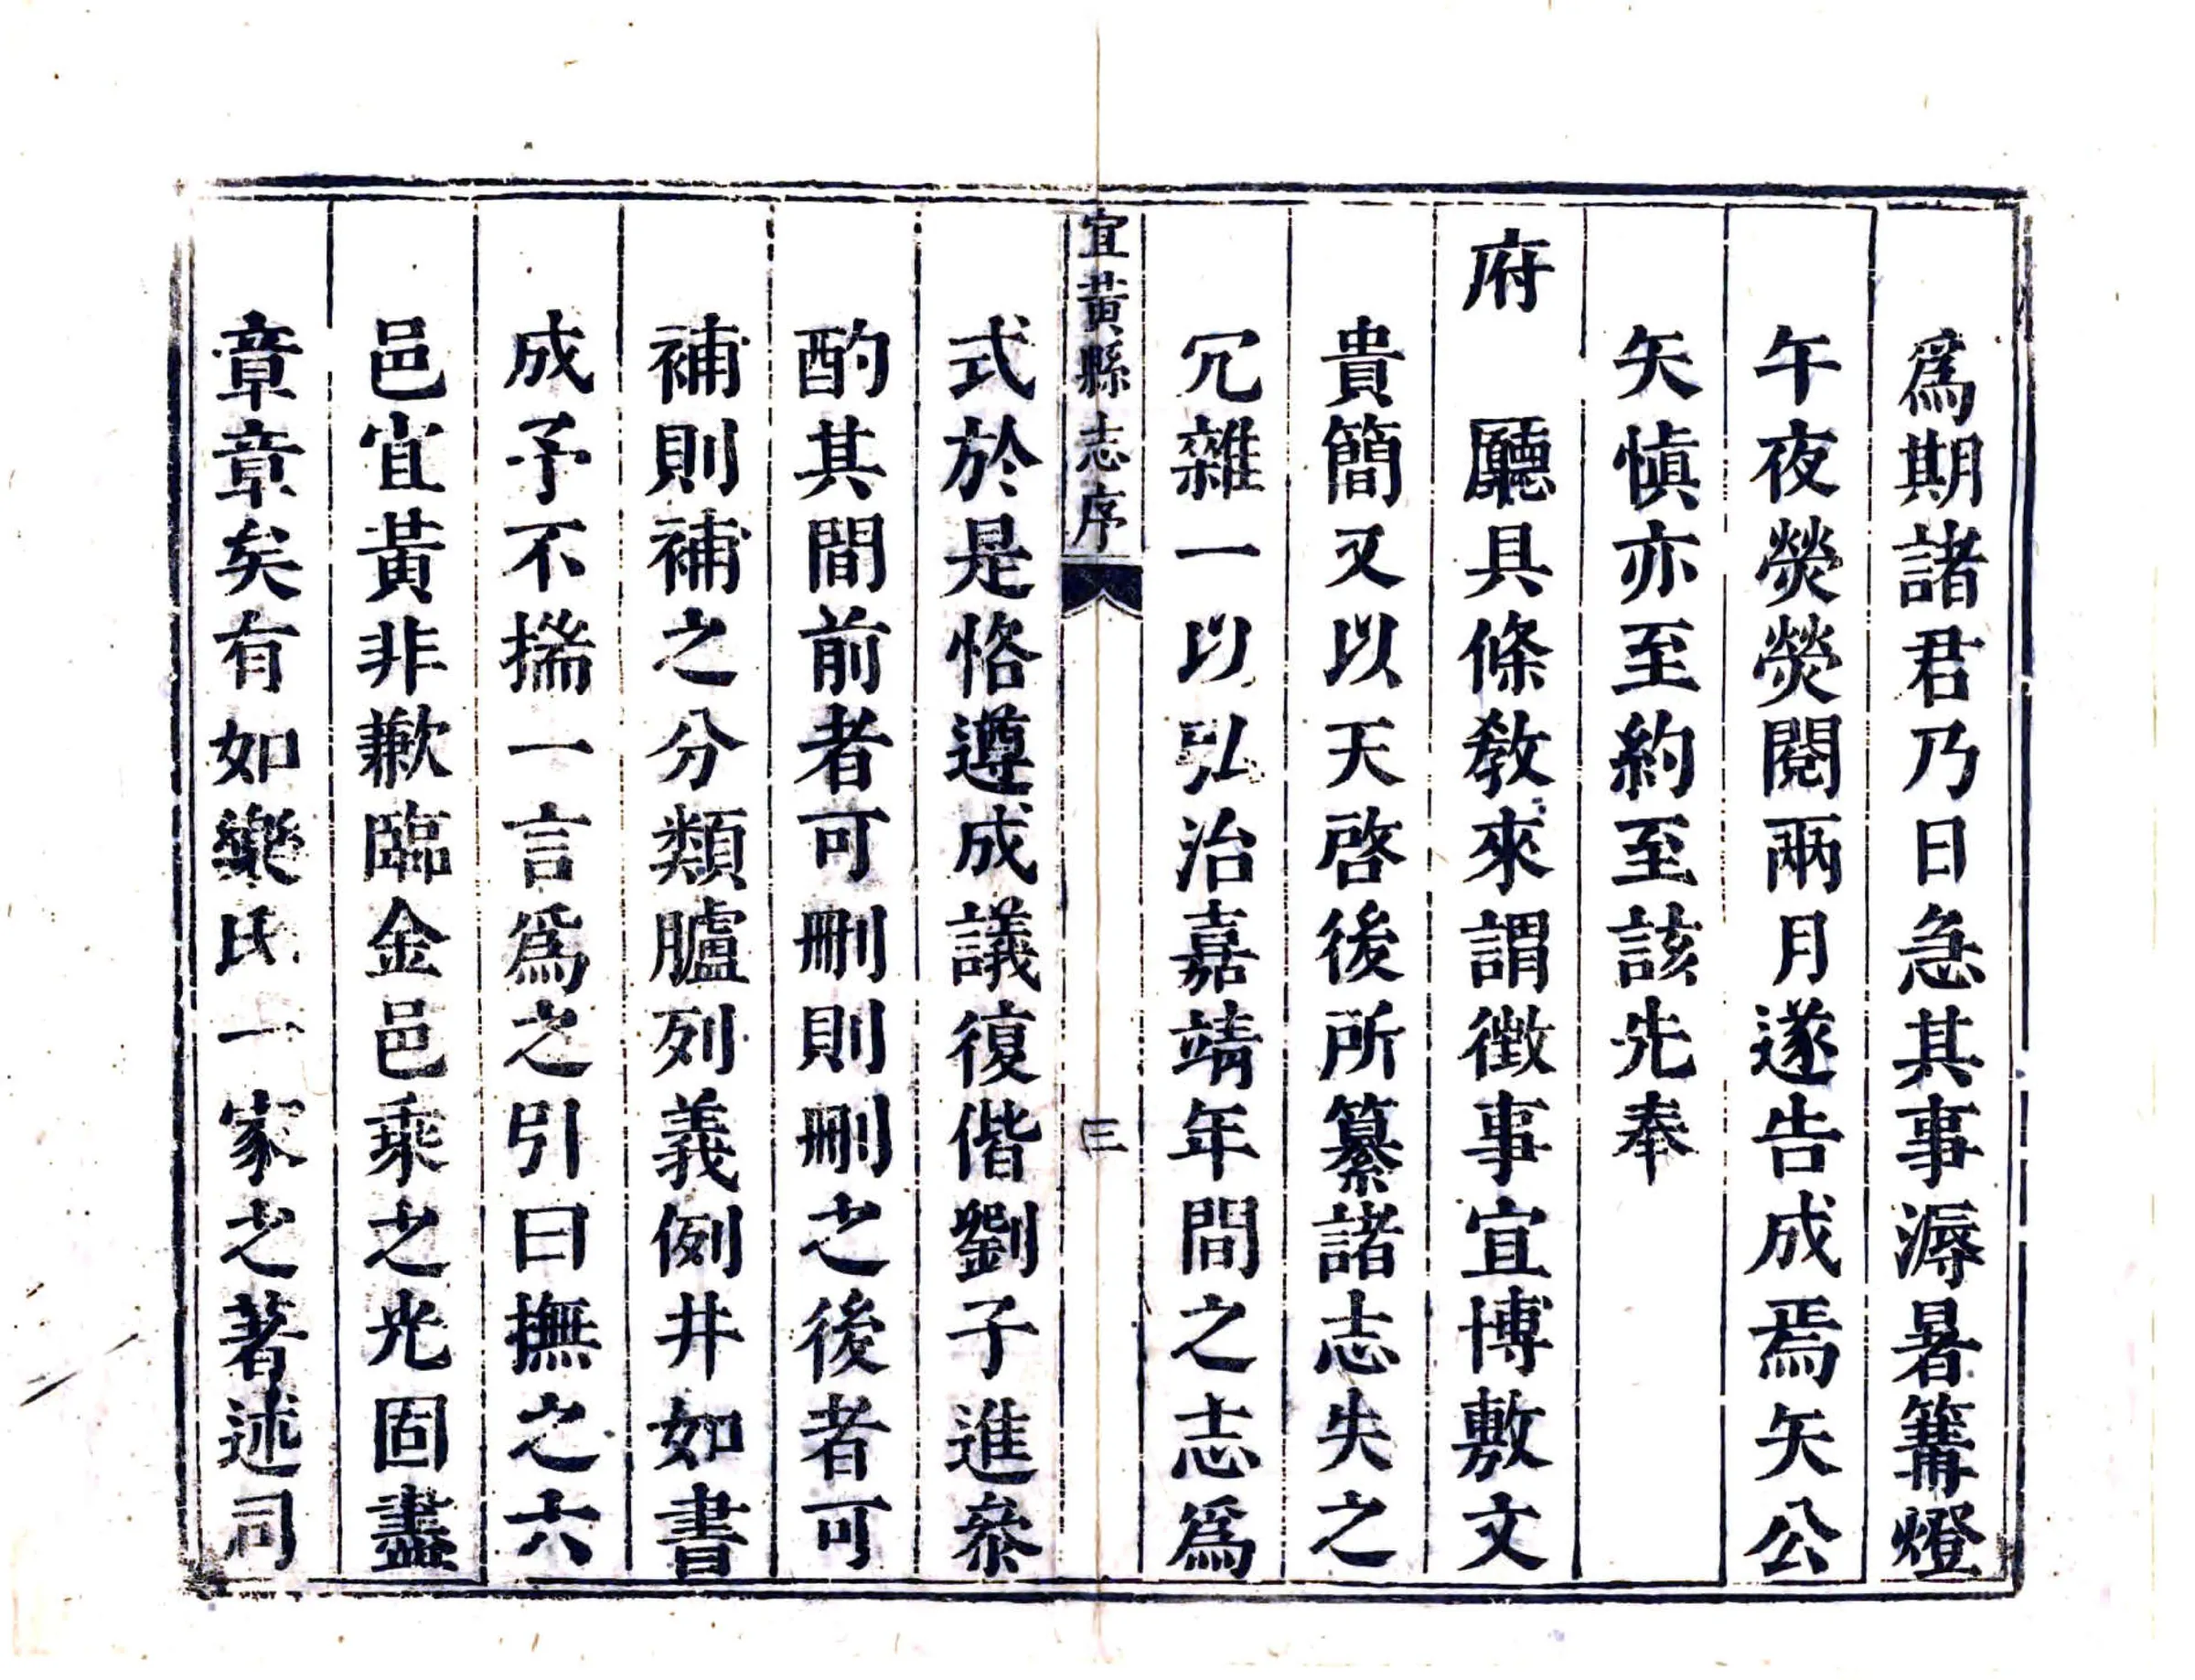 爲期諸君乃日急其事溽暑篝燈
午夜熒熒閱兩月遂告成焉矢公
矢愼亦至約至該先奉
府　廳具條敎來謂徵事宜博敷文
貴簡又以天啓後所纂諸志失之
冗雜一以弘治嘉靖年間之志爲
宜黃縣志序　三
式於是恪遵成議復偕劉子進叅
酌其間前者可刪則刪之後者可
補則補之分類臚列義例井如書
成予不揣一言爲之引曰撫之六
邑宜黃非歉臨金邑乘之光固盡
章章矣有如樂氏一家之著述司